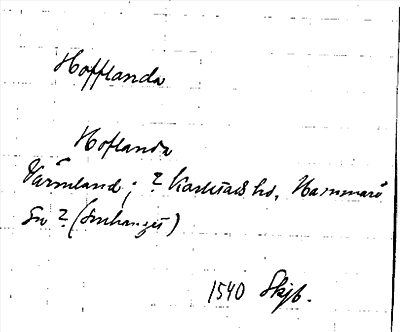 Hofflanda
Hoflanda
Värmland; ? Karlstads hd, Hammarö
sn ? (
1540 Skjb.